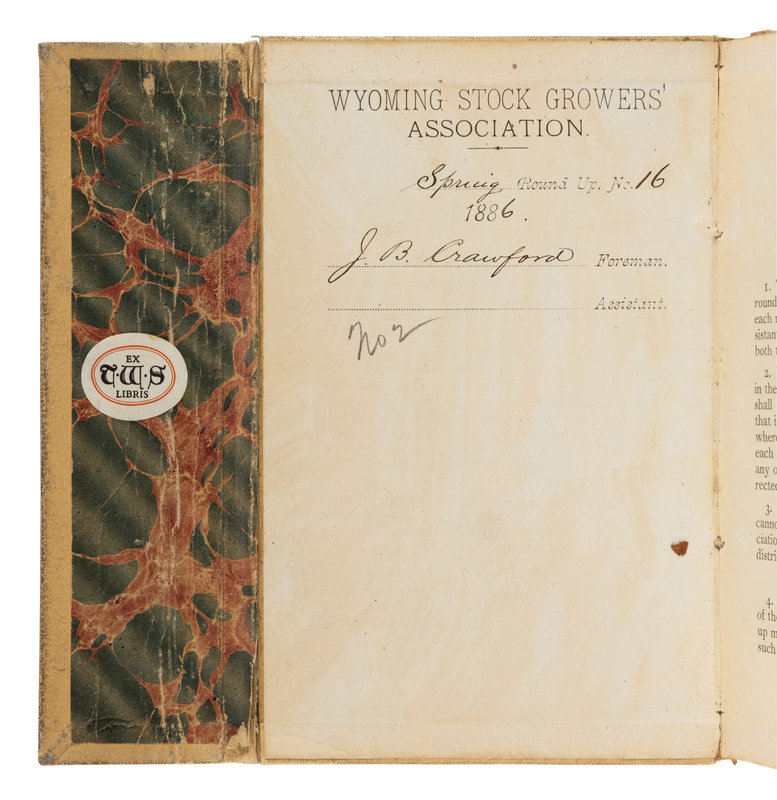 EX
T·W·S
LIBRIS
WYOMING STOCK GROWERS'
ASSOCIATION.
Spring Round Up. No. 16
1886.
J. B. Crawford Foreman.
Assistant.
No 2
1.
round
each
sistan
both
2.
in the
shall
that i
where
each
any o
rected
3.
canno
ciatio
distri
4.
of the
up m
such